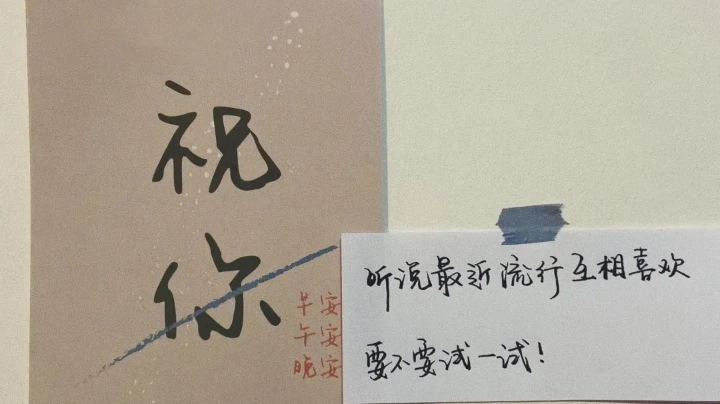 祝
你
早安
午安
晚安
听说最近流行互相喜欢
要不要试一试!